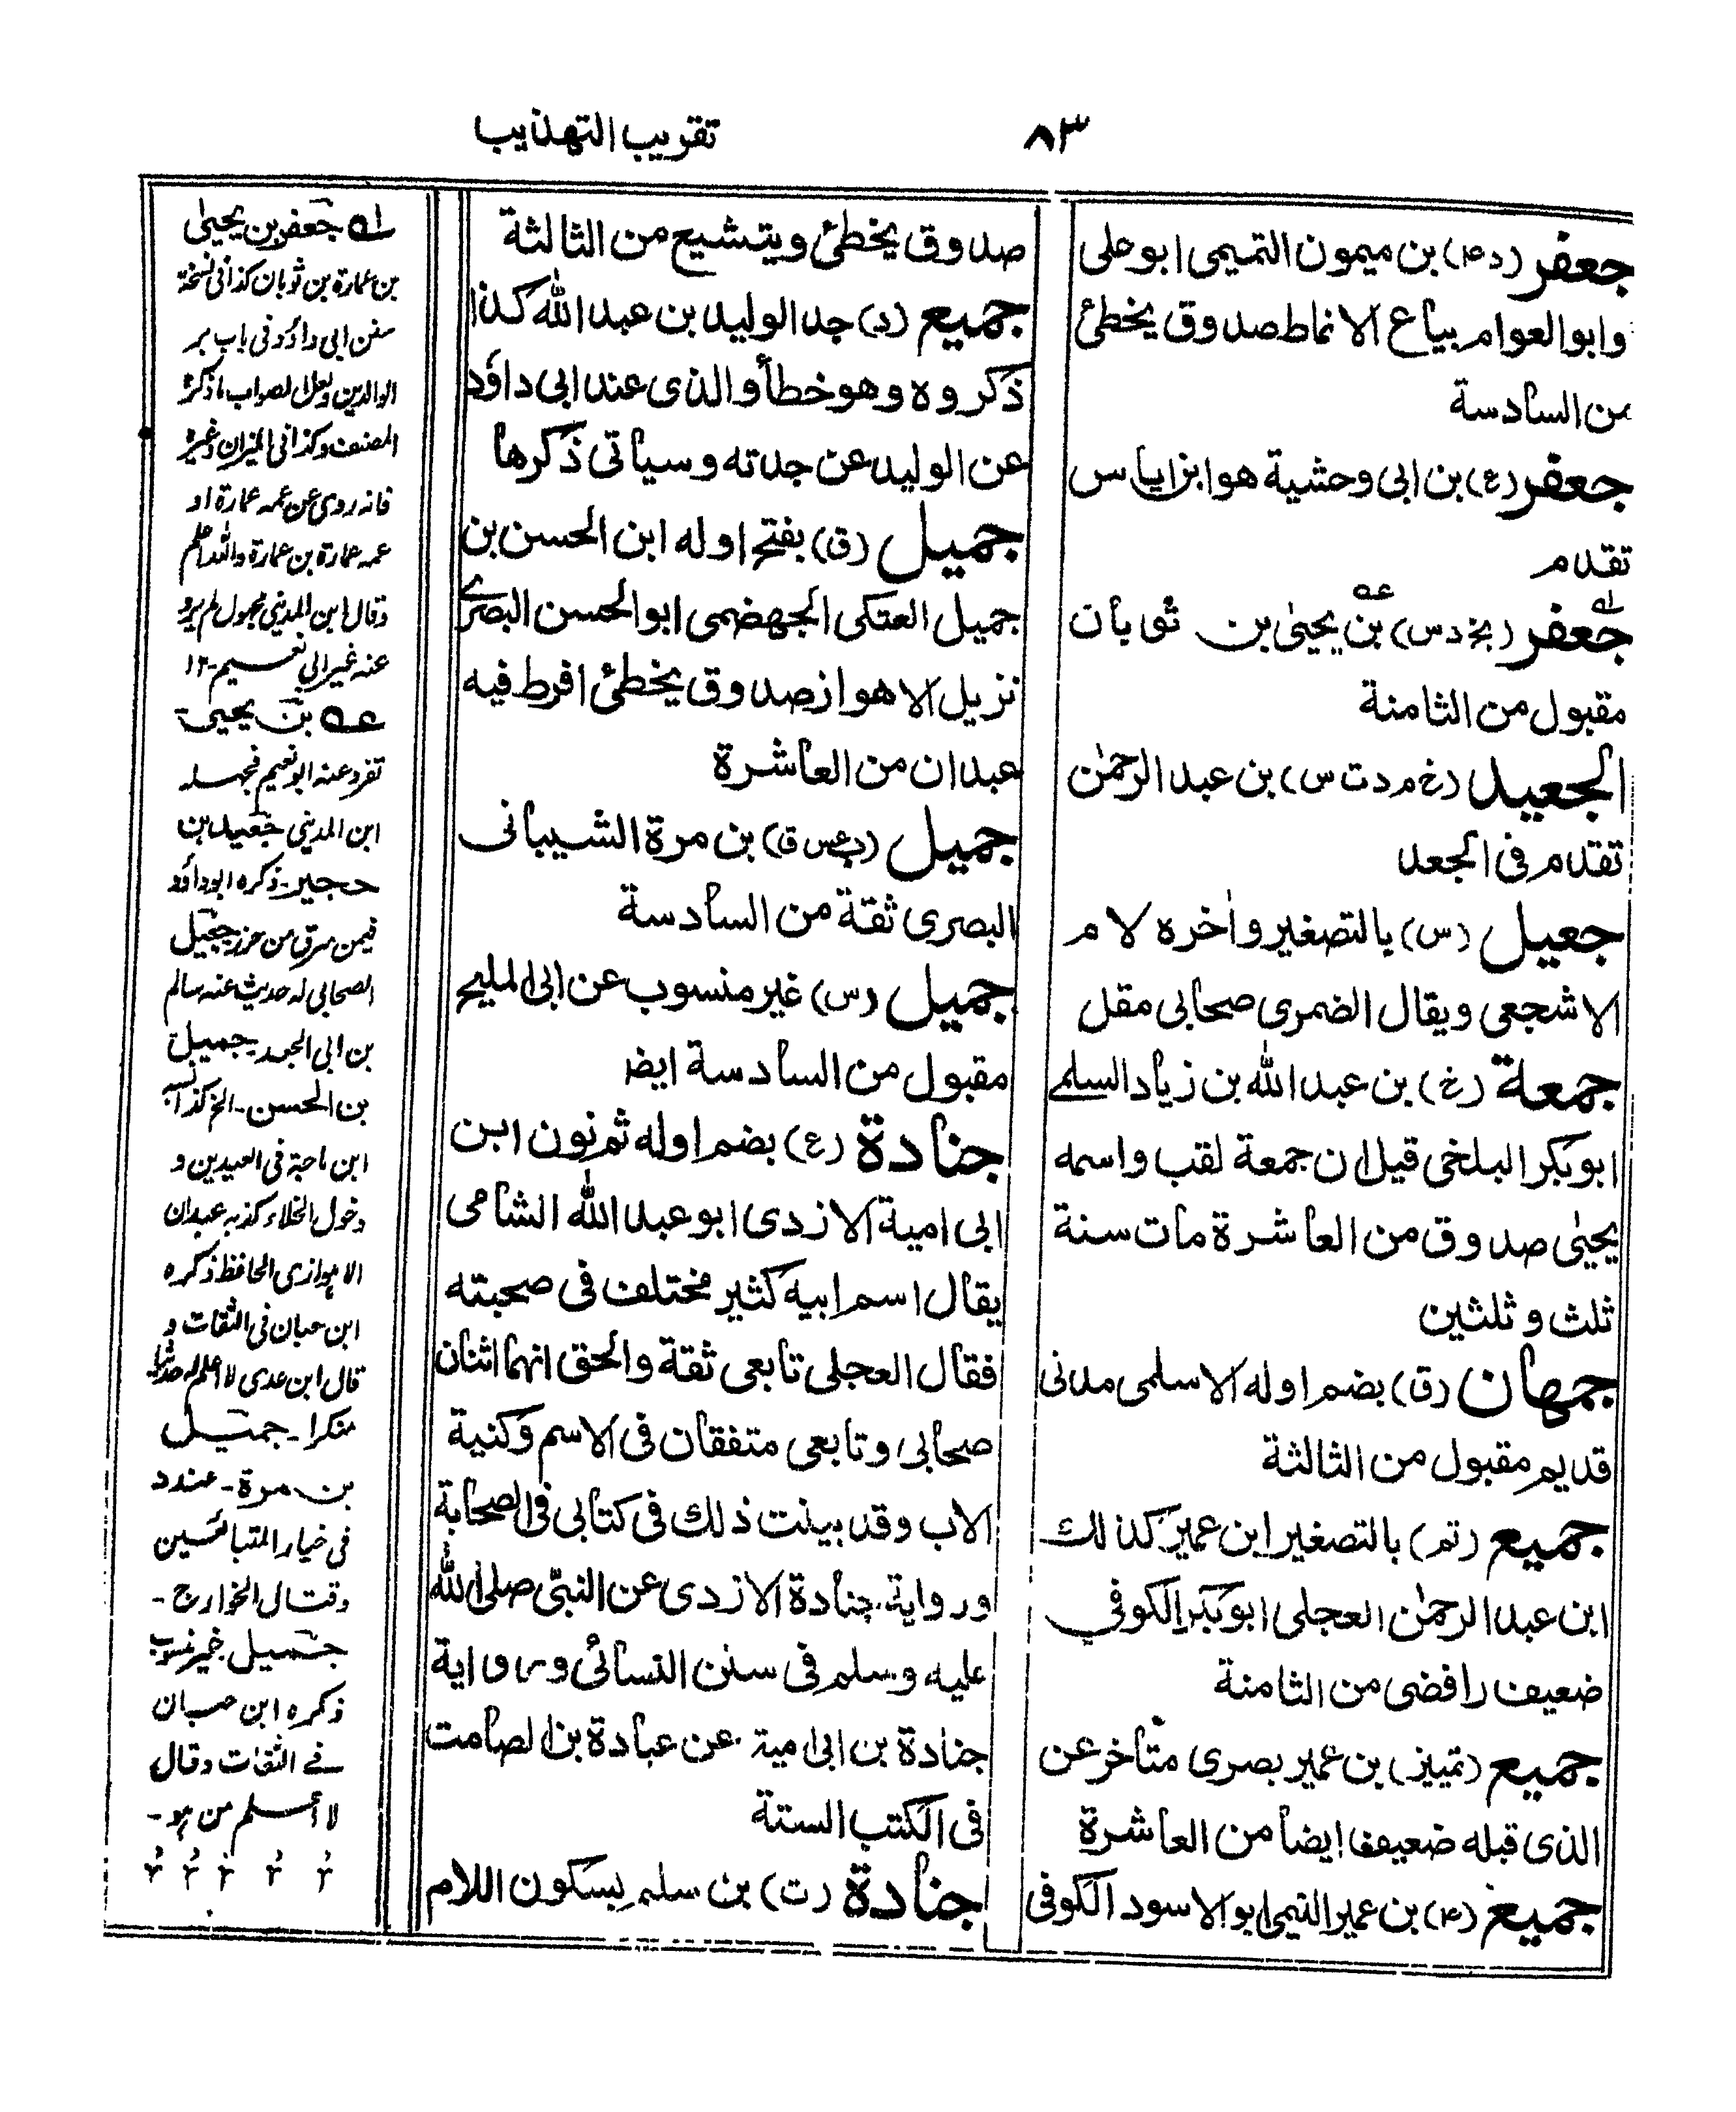 ٨٣
تقريب التهذيب
جعفر (د ٤) بن ميمون التميمى ابو على
وابو العوام بياع الانماط صدوق يخطئ
من السادسة
جعفر (ع) بن ابى وحشية هو ابن اياس
تقدم
جعفر (بخ د س) بن يحيىٰ بن ثوبان
مقبول من الثامنة
الجعيد (خ م د ت س) بن عبد الرحمٰن
تقدم فى الجعد
جعيل (س) بالتصغير واٰخره لام
الاشجعى ويقال الضمرى صحابى مقل
جمعة (خ) بن عبد الله بن زياد السلمے
ابو بكر البلخى قيل ان جمعة لقب واسمه
يحيىٰ صدوق من العاشرة مات سنة
ثلث وثلثين
جمهان (ق) بضم اوله الاسلمى مدنى
قديم مقبول من الثالثة
جميع (تم) بالتصغير ابن عمير كذلك
ابن عبد الرحمٰن العجلى ابو بكر الكوفي
ضعيف رافضى من الثامنة
جميع (تمييز) بن عمير بصرى متأخر عن
الذى قبله ضعيف ايضا من العاشرة
جميع (٤) بن عمير التيمى ابو الاسود الكوفى
صدوق يخطئ ويتشيع من الثالثة
جميع (د) جد الوليد بن عبد الله كذا
ذكروه وهو خطأ والذى عند ابى داؤد
عن الوليد عن جدته وسياتى ذكرها
جميل (ق) بفتح اوله ابن الحسن بن
جميل العتكى الجهضمى ابو الحسن البصرے
نزيل الاهواز صدوق يخطئ افرط فيه
عبدان من العاشرة
جميل (د عس ق) بن مرة الشيبانى
البصرى ثقة من السادسة
جميل (س) غير منسوب عن ابى المليح
مقبول من السادسة ايضا
جنادة (ع) بضم اوله ثم نون ابن
ابى امية الازدى ابو عبد الله الشامى
يقال اسم ابيه كثير مختلف فى صحبته
فقال العجلى تابعى ثقة والحق انهما اثنان
صحابى وتابعى متفقان فى الاسم وكنية
الاب وقد بينت ذلك فى كتابى فى الصحابة
ورواية جنادة الازدى عن النبى صلى الله
عليه وسلم فى سنن النسائى ورواية
جنادة بن ابى امية عن عبادة بن الصامت
فى الكتب الستة
جنادة (ت) بن سلم بسكون اللام
له جعفر بن يحيىٰ
بن عمارة بن ثوبان كذا فى نسخة
سنن ابى داؤد فى باب بر
الوالدين ولعل الصواب ما ذكره
المصنف وكذا فى الميزان وغيره
فانه روى عن عمه عمارة او
عمه عمارة بن عمارة والله اعلم
وقال ابن المدينى مجهول لم يرو
عنه غير ابي نعيم ـ ١٢
عه بن يحيىٰ
تفرد عنه ابو نعيم فجهله
ابن المدينى جعيد بن
حجير ـ ذكره ابو داؤد
فيمن سرق من حرز جعيل
الصحابى له حديث عنه سالم
بن ابى الجعد ـ جميل
بن الحسن ـ الخ كذا نسبه
ابن ماجة فى العيدين و
دخول الخلاء كذبه عبدان
الاهوازى الحافظ ذكره
ابن حبان فى الثقات و
قال ابن عدى لا اعلم له حديثا
منكرا ـ جميل
بن مرة ـ عند د
فى خيار المتبائعين
وقتال الخوارج ـ
جميل غير منسوب
ذكره ابن حبان
فے الثقات وقال
لا أعلم من هو ـ